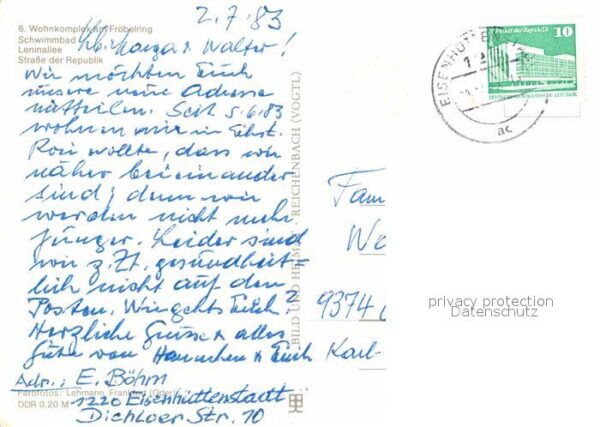 2.7.83
6. Wohnkomplex am Fröbelring
Schwimmbad
Leninallee
Straße der Republik
Lb. Marga u Walter!
Wir möchten Euch
unsere neue Adresse
mitteilen. Seit 5.6.83
wohnen wir in Ehst.
Rosi wollte, dass wir
näher beieinander
sind; denn wir
werden nicht mehr
jünger. Leider sind
wir z.Zt. gesundheit=
lich nicht auf dem
Posten. Wie gehts Euch?
Herzliche Grüsse u alles
Gute von Hannchen u Erich
Adr.: E. Böhm
Farbfotos: Lehmann, Frankfurt (Oder)
1220 Eisenhüttenstadt
DDR 0,20 M
Dichloer Str. 10
BILD UND HEIMAT REICHENBACH (VOGTL)
EISENHÜTTENSTADT
12
ac
Palast der Republik
10
Fam
We
9374
Karl-
privacy protection
Datenschutz